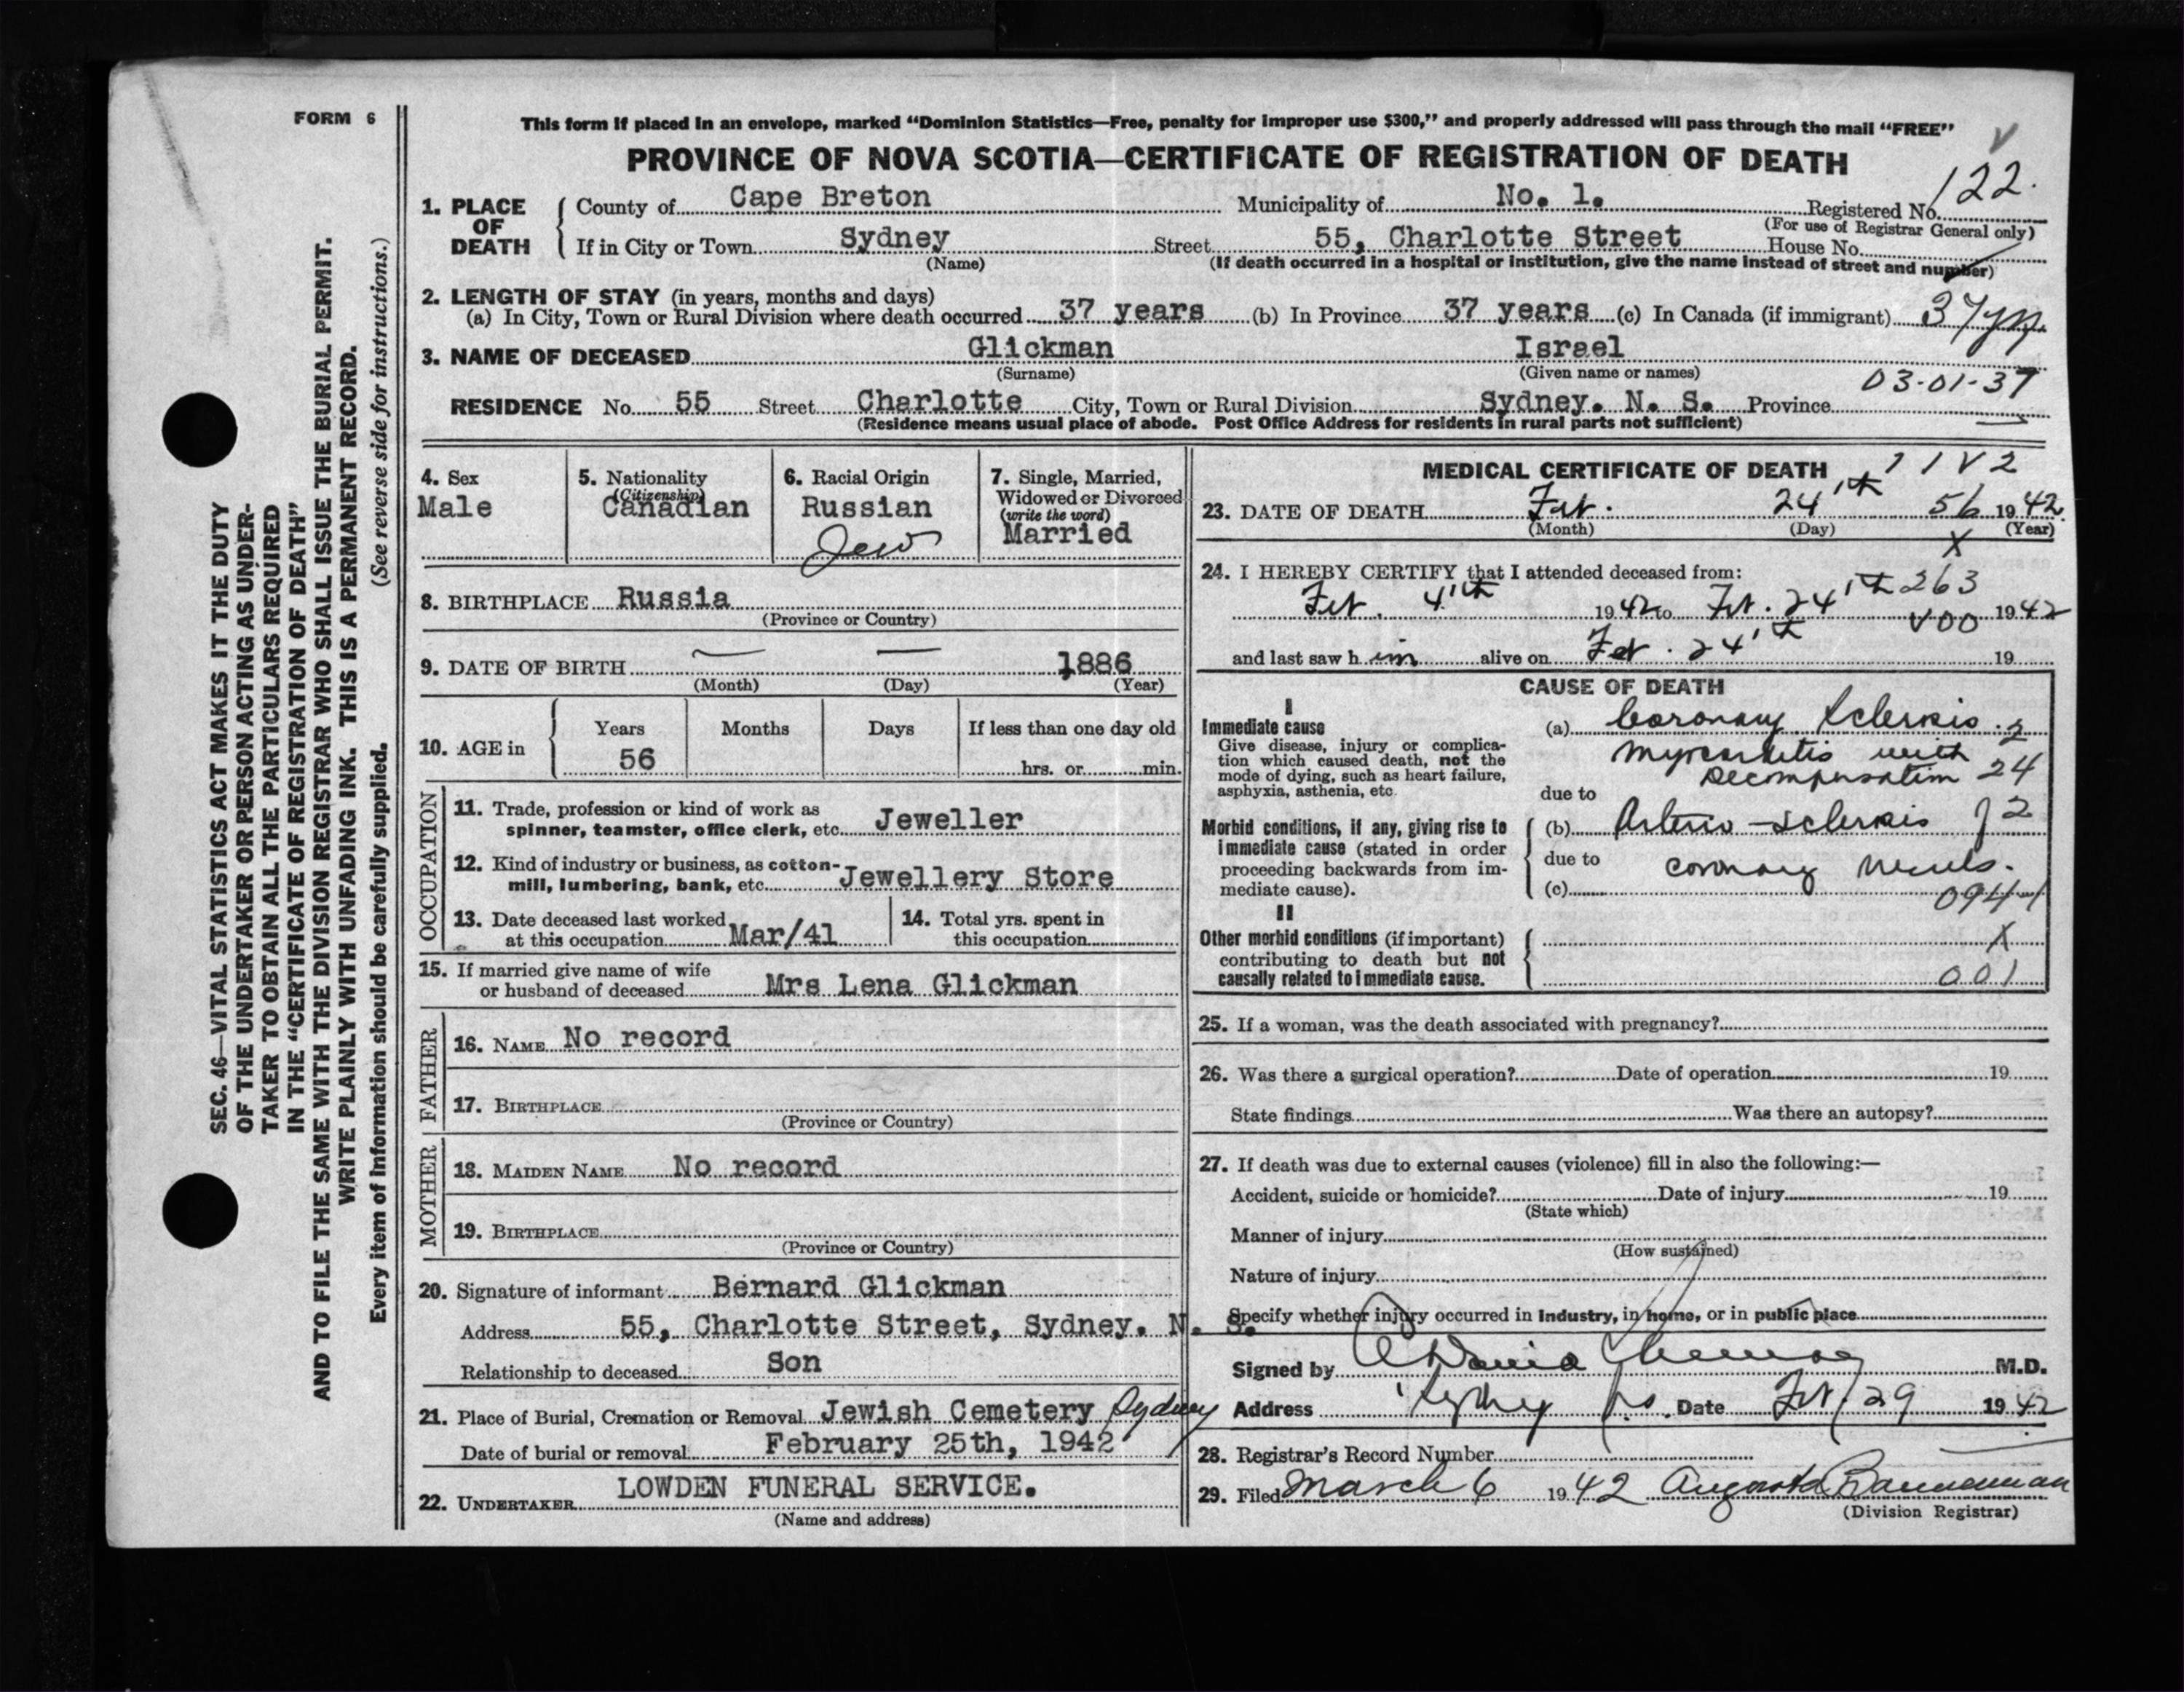 FORM 6
This form if placed in an envelope, marked “Dominion Statistics—Free, penalty for improper use $300,” and properly addressed will pass through the mail “FREE”
PROVINCE OF NOVA SCOTIA—CERTIFICATE OF REGISTRATION OF DEATH
1. PLACE OF DEATH { County of Cape Breton Municipality of No. 1. Registered No. 122.
(For use of Registrar General only)
If in City or Town Sydney Street 55, Charlotte Street House No.
(Name) (If death occurred in a hospital or institution, give the name instead of street and number)
2. LENGTH OF STAY (in years, months and days)
(a) In City, Town or Rural Division where death occurred 37 years (b) In Province 37 years (c) In Canada (if immigrant) 37 yrs
3. NAME OF DECEASED Glickman Israel
(Surname) (Given name or names)
03-01-37
RESIDENCE No. 55 Street Charlotte City, Town or Rural Division Sydney. N. S. Province
(Residence means usual place of abode. Post Office Address for residents in rural parts not sufficient)
4. Sex
Male
5. Nationality
(Citizenship)
Canadian
6. Racial Origin
Russian
Jew
7. Single, Married,
Widowed or Divorced
(write the word)
Married
8. BIRTHPLACE Russia
(Province or Country)
9. DATE OF BIRTH — — 1886
(Month) (Day) (Year)
10. AGE in { Years Months Days If less than one day old
56 hrs. or min.
OCCUPATION
11. Trade, profession or kind of work as
spinner, teamster, office clerk, etc. Jeweller
12. Kind of industry or business, as cotton-
mill, lumbering, bank, etc. Jewellery Store
13. Date deceased last worked
at this occupation Mar/41
14. Total yrs. spent in
this occupation
15. If married give name of wife
or husband of deceased Mrs Lena Glickman
FATHER
16. NAME No record
17. BIRTHPLACE
(Province or Country)
MOTHER
18. MAIDEN NAME No record
19. BIRTHPLACE
(Province or Country)
20. Signature of informant Bernard Glickman
Address 55, Charlotte Street, Sydney. N. S.
Relationship to deceased Son
21. Place of Burial, Cremation or Removal Jewish Cemetery Sydney
Date of burial or removal February 25th, 1942
22. UNDERTAKER LOWDEN FUNERAL SERVICE.
(Name and address)
MEDICAL CERTIFICATE OF DEATH
23. DATE OF DEATH Feb. 24'th 56 1942
(Month) (Day) (Year)
X
24. I HEREBY CERTIFY that I attended deceased from:
263
Feb. 4'th 1942 to Feb. 24'th 1942
and last saw h im alive on Feb. 24'th 19
CAUSE OF DEATH
I
Immediate cause
Give disease, injury or complica-
tion which caused death, not the
mode of dying, such as heart failure,
asphyxia, asthenia, etc.
(a) Coronary Sclerosis. 2
Myocarditis with
Decompensation 24
due to
Morbid conditions, if any, giving rise to
immediate cause (stated in order
proceeding backwards from im-
mediate cause).
(b) Arterio-sclerosis 2
due to coronary vessels.
(c) 094
II
Other morbid conditions (if important)
contributing to death but not
causally related to immediate cause.
X
001
25. If a woman, was the death associated with pregnancy?
26. Was there a surgical operation? Date of operation 19
State findings Was there an autopsy?
27. If death was due to external causes (violence) fill in also the following:—
Accident, suicide or homicide? Date of injury 19
(State which)
Manner of injury
(How sustained)
Nature of injury
Specify whether injury occurred in industry, in home, or in public place
Signed by M.D.
Address Sydney N.S. Date Feb 29 1942
28. Registrar's Record Number
29. Filed March 6 1942 Augusta Bannerman
(Division Registrar)
SEC. 46—VITAL STATISTICS ACT MAKES IT THE DUTY
OF THE UNDERTAKER OR PERSON ACTING AS UNDER-
TAKER TO OBTAIN ALL THE PARTICULARS REQUIRED
IN THE “CERTIFICATE OF REGISTRATION OF DEATH”
AND TO FILE THE SAME WITH THE DIVISION REGISTRAR WHO SHALL ISSUE THE BURIAL PERMIT.
WRITE PLAINLY WITH UNFADING INK. THIS IS A PERMANENT RECORD.
Every item of information should be carefully supplied. (See reverse side for instructions.)